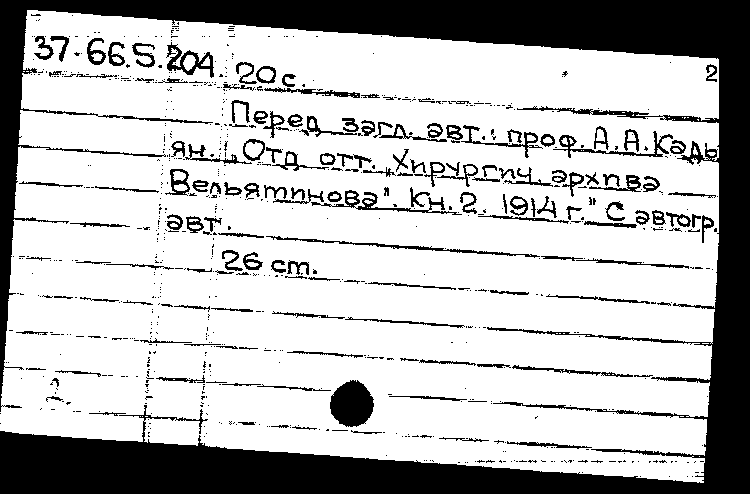 2
37.66.5.204. 20 с.
Перед загл. авт.: проф. А.А.Кадь
ян. „Отд отт. „Хирургич. архива
Вельяминова". Кн.2. 1914 г." С автогр.
авт.
26 ст.
2.